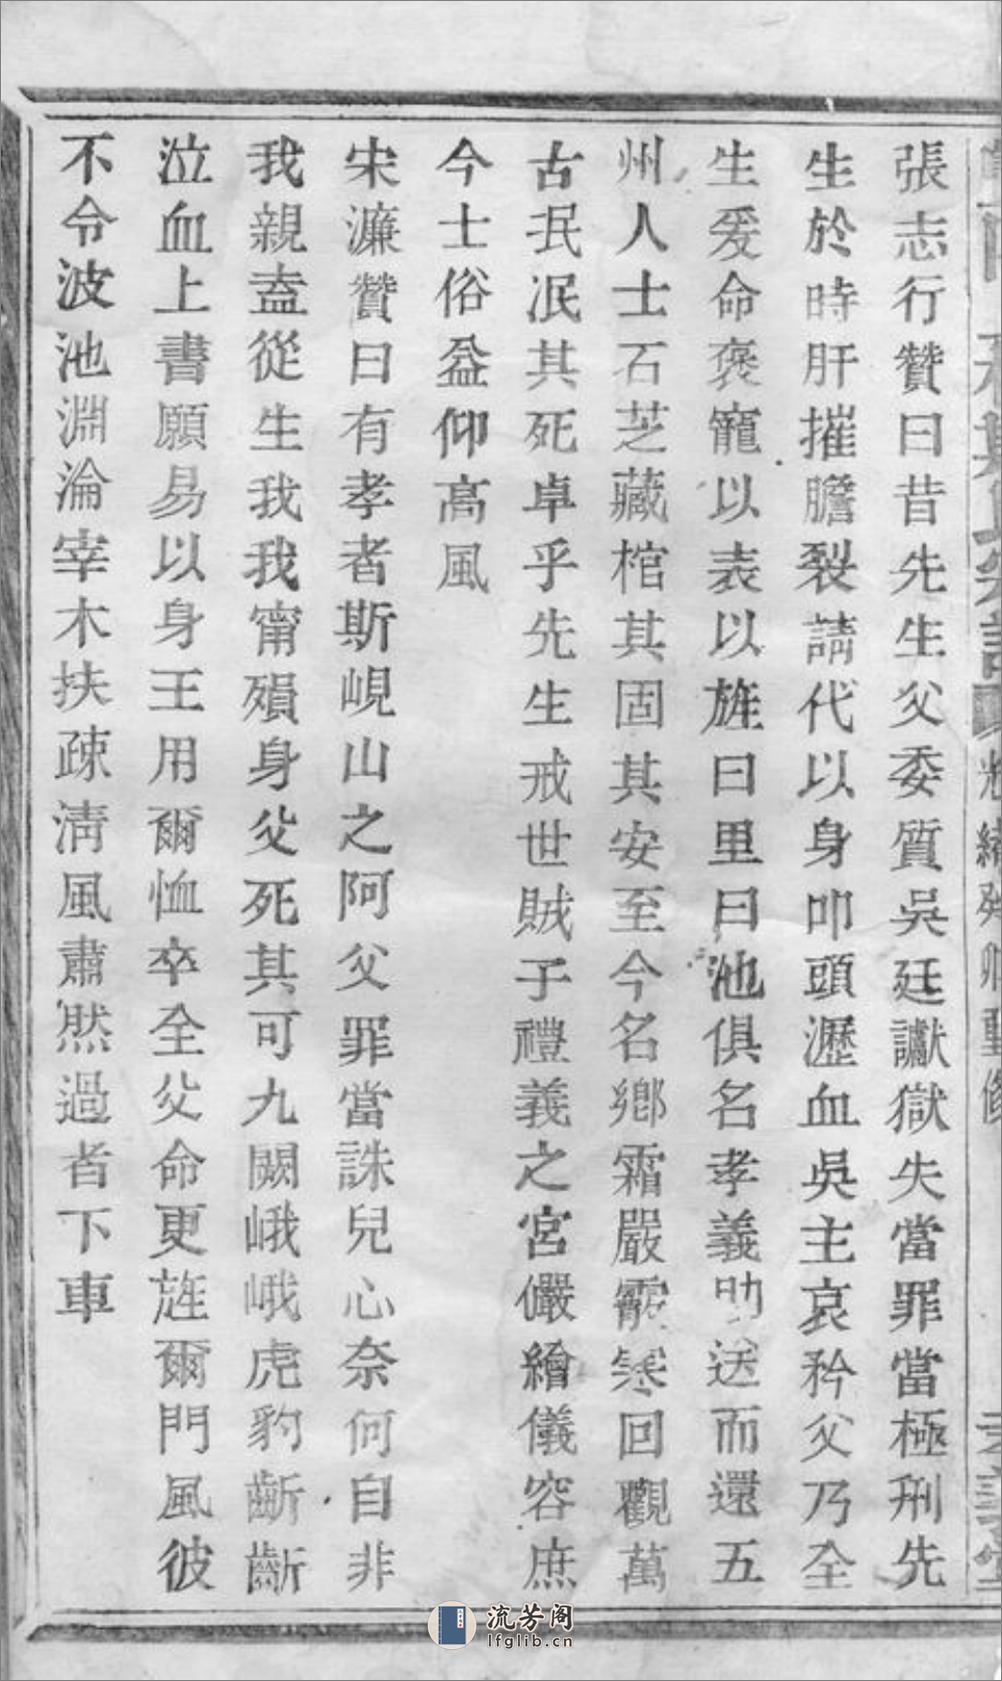 張志行贊曰昔先生父委質吳廷讞獄失當罪當極刑先
生於時肝摧膽裂請代以身叩頭瀝血吳主哀矜父乃全
生爰命褒寵以表以旌曰里曰池俱名孝義助送而還五
州人士石芝藏棺其固其安至今名鄉霜嚴霰寒回觀萬
古民泯其死卓乎先生戒世賊子禮義之宮儼繪儀容庶
今士俗益仰高風
宋濂贊曰有孝者斯峴山之阿父罪當誅兒心奈何自非
我親盍從生我我甯殞身父死其可九闕峨峨虎豹齗齗
泣血上書願易以身王用爾恤卒全父命更旌爾門風彼
不令波池淵淪宰木扶疎淸風肅然過者下車
流芳阁
lfglib.cn